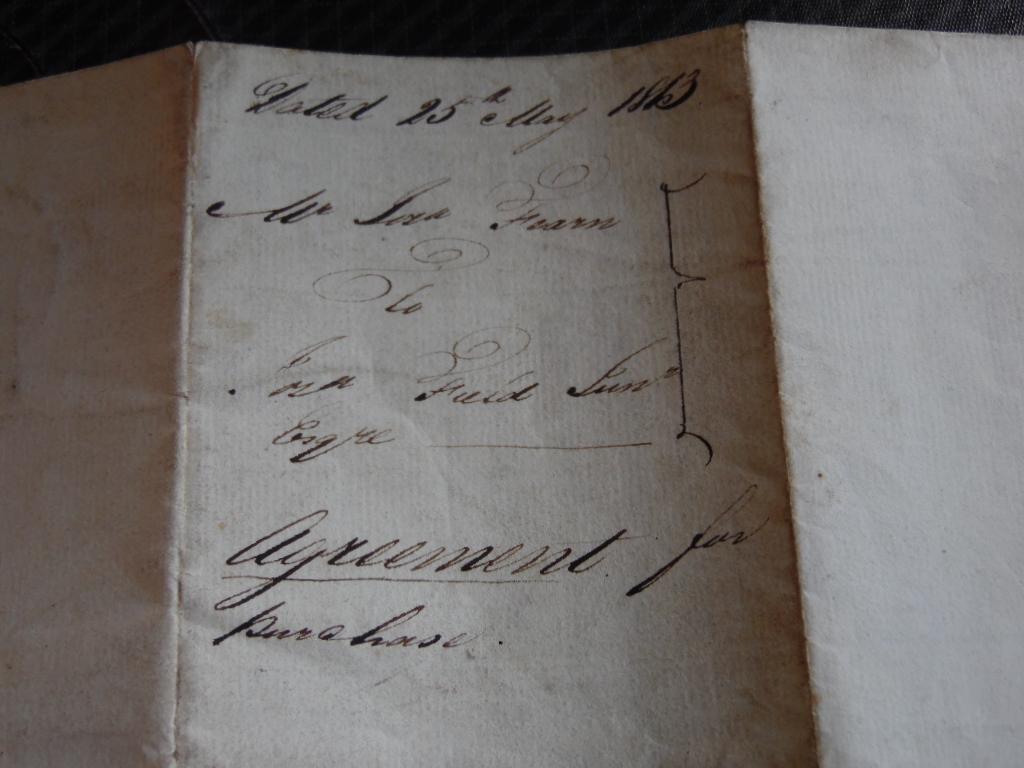 Dated 25th May 1813
Mr Fearn
to
Field Junr
Esqre
Agreement for
Purchase.